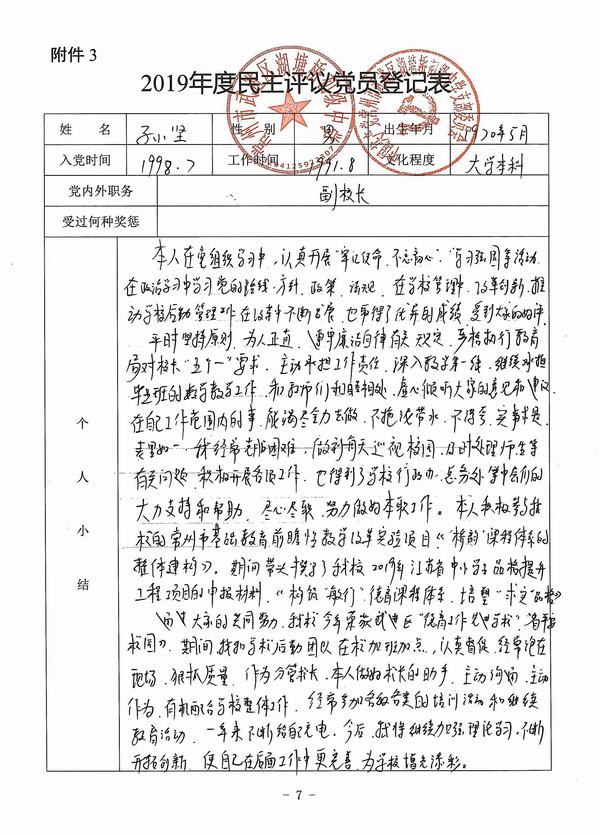 附件 3
2019年度民主评议党员登记表
姓 名 孙小坚 性 别 男 出生年月 1970年5月
入党时间 1998.7 工作时间 1991.8 文化程度 大学本科
党内外职务 副校长
受过何种奖惩
个人小结
本人在党组织学习中，认真开展“牢记使命、不忘初心”、“学习强国等活动，
在政治学习中学习党的路线、方针、政策、法规，在学校管理中，改革创新，推
动学校后勤管理工作在改革中不断发展，也取得了优异的成绩，受到大家的好评。
平时坚持原则，为人正直，遵守廉洁自律有关规定，严格执行教育
局对校长“五个一”要求，主动承担工作责任，深入教学第一线，继续承担
毕业班的数学教学工作，和教师们和睦相处，虚心倾听大家的意见和建议，
在自己工作范围内的事，能竭尽全力去做，不拖泥带水，不浮夸，实事求是，
表里如一，我经常克服困难，做到每天巡视校园，及时处理师生等
有关问题，积极开展各项工作，也得到了学校行政办、总务处等中全们的
大力支持和帮助，尽心尽职，努力做好本职工作。本人积极参与我
校的常州市基础教育前瞻性教学改革实验项目《“桥韵”课程体系的
整体建构》。期间带头撰写了我校2019年江苏省中小学生品格提升
工程项目的申报材料，《构筑“敏行”德育课程体系，培塑“求实”品格》
由于大家的共同努力，我校今年荣获武进区“德育工作先进学校”、省平安
校园》，期间我和学校后勤团队在校加班加点，认真督促，经常泡在
现场，狠抓质量，作为分管校长，本人做好校长的助手，主动询问，主动
作为，有机配合学校整体工作，经常参加各级各类的培训活动和继续
教育活动，一年来不断给自己充电，今后，我将继续加强理论学习，不断
开拓创新，使自己在后面工作中更完善，为学校增光添彩。
- 7 -